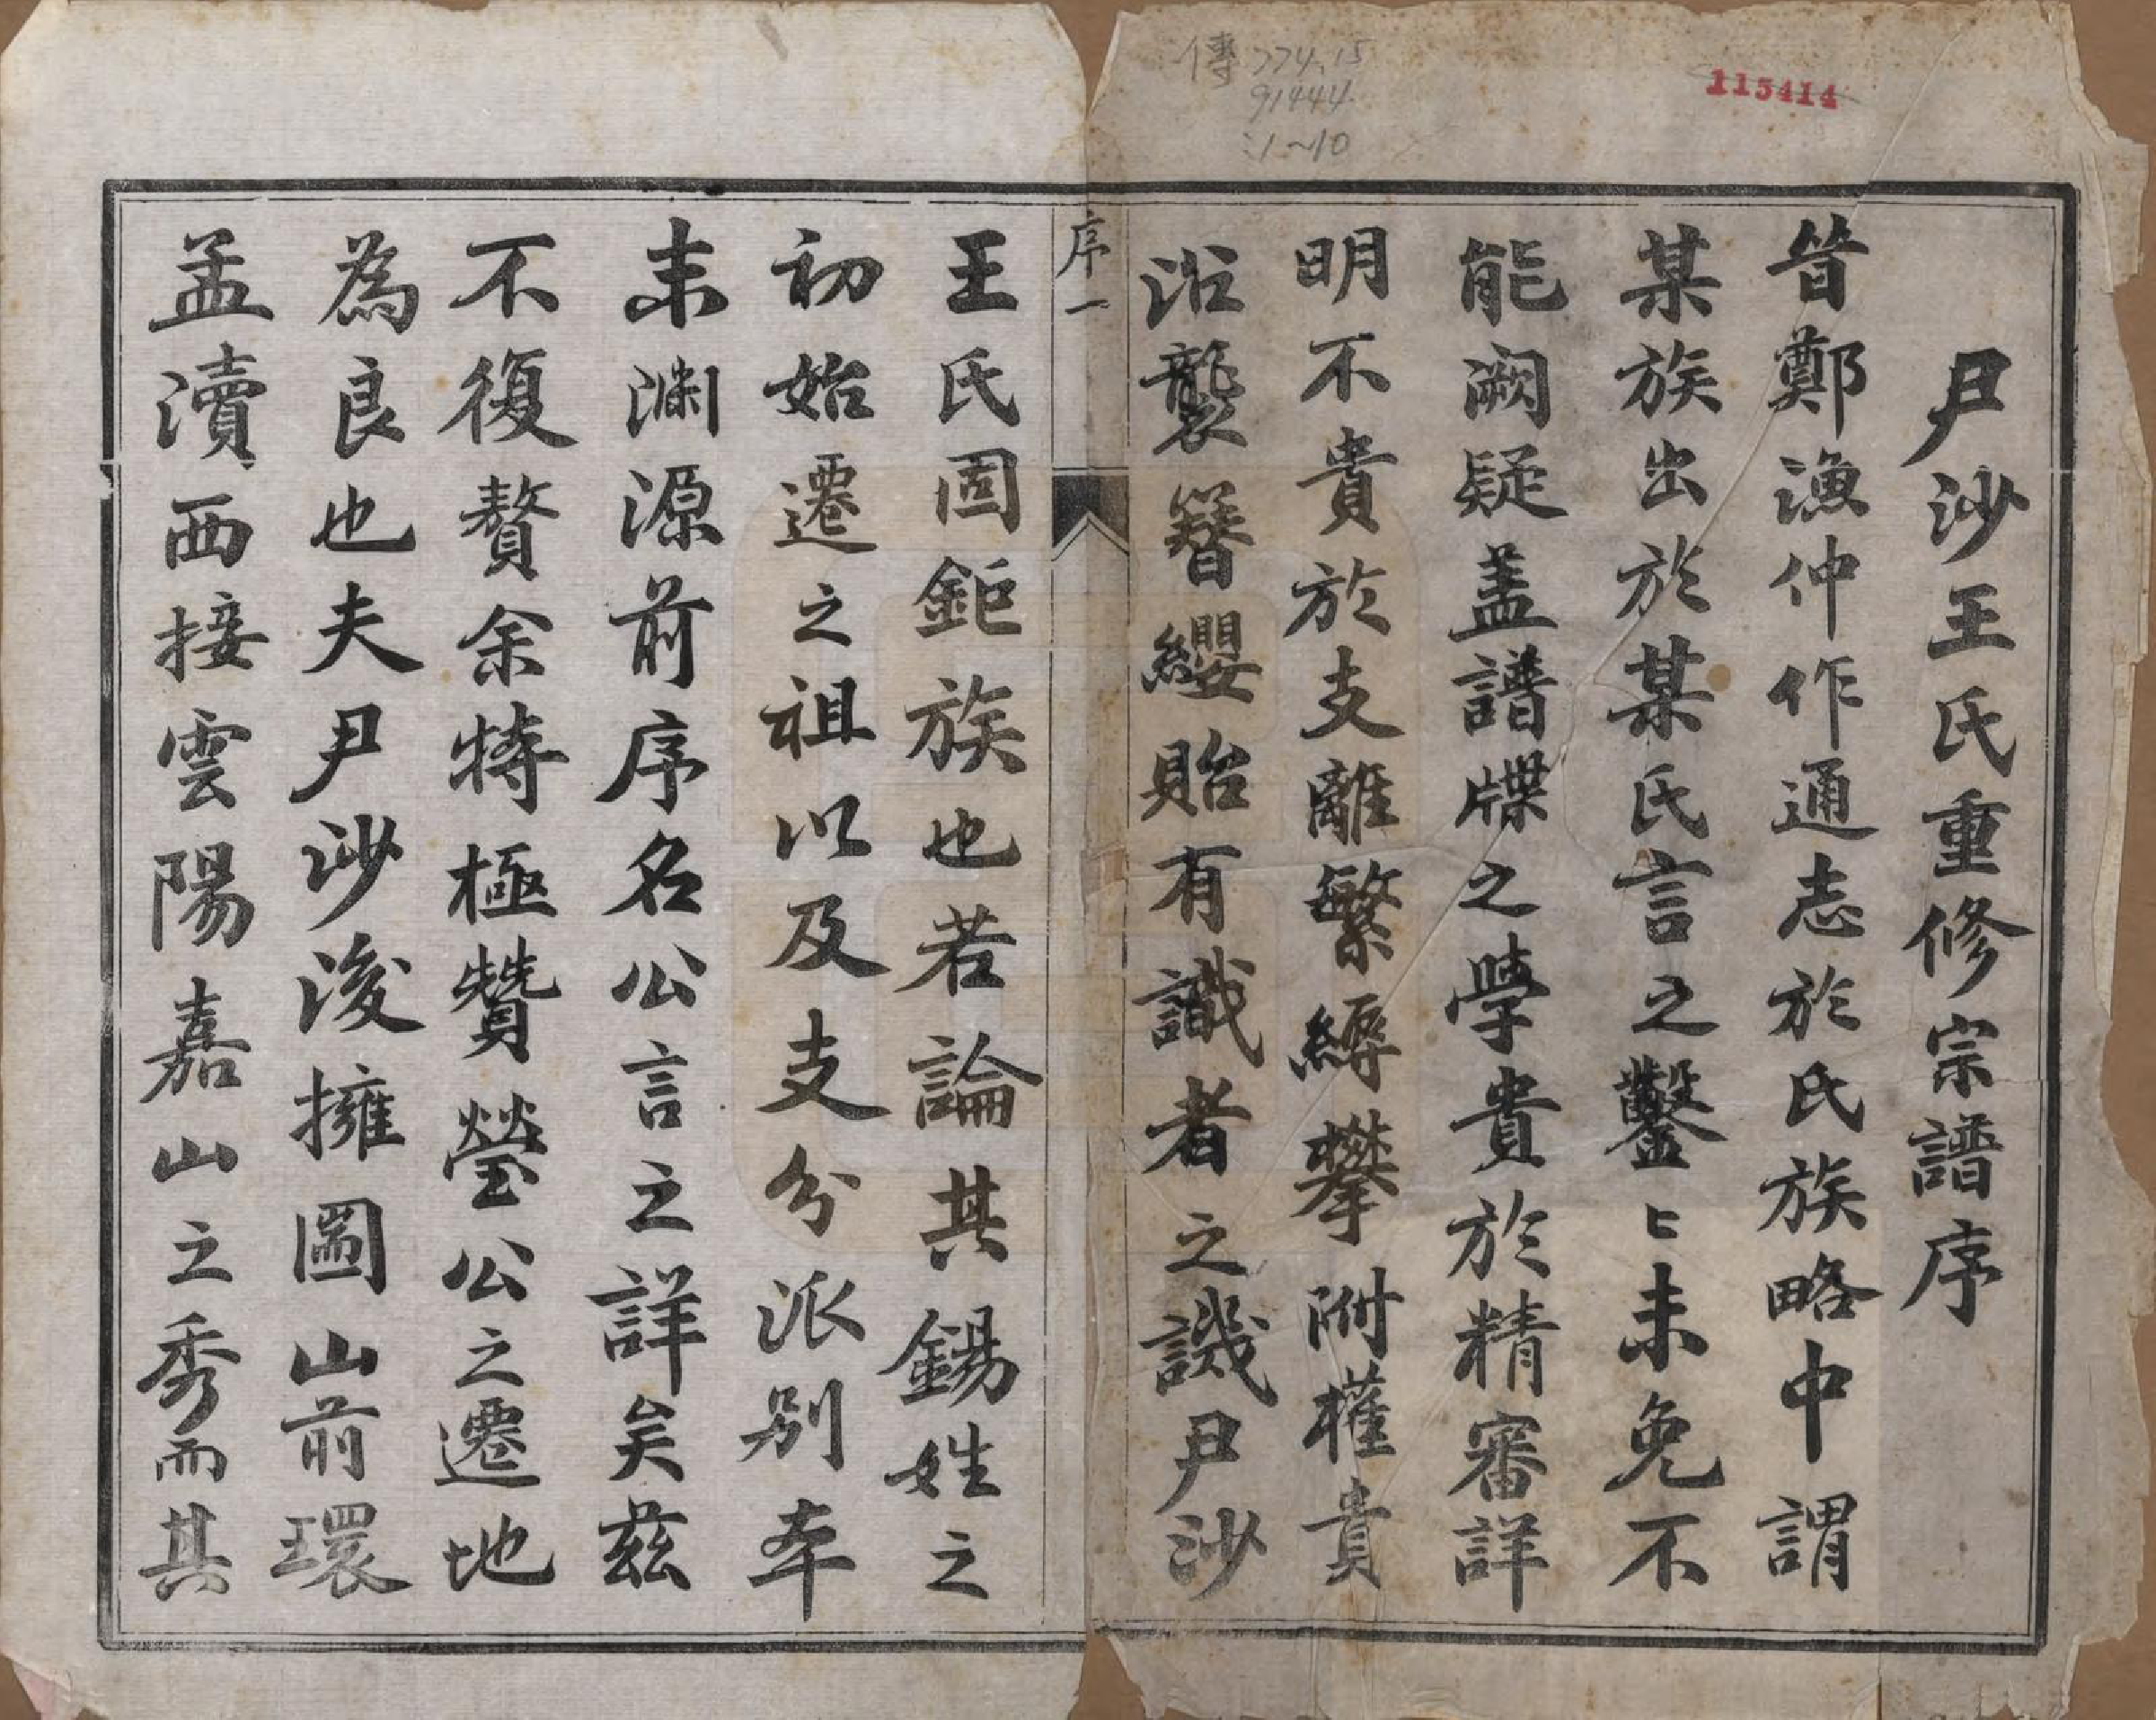 傳 774.15
91444
:1~10
115414
尹沙王氏重修宗譜序
昔鄭漁仲作通志於氏族略中謂
某族出於某氏言之鑿〻未免不
能闕疑盖譜牒之學貴於精審詳
明不貴於支離繁縟攀附權貴
沿襲簪纓貽有識者之譏尹沙
序一
王氏固鉅族也若論其錫姓之
初始遷之祖以及支分派别本
末淵源前序名公言之詳矣茲
不復贅余特極贊瑩公之遷地
為良也夫尹沙後擁圌山前環
孟瀆西接雲陽嘉山之秀而其